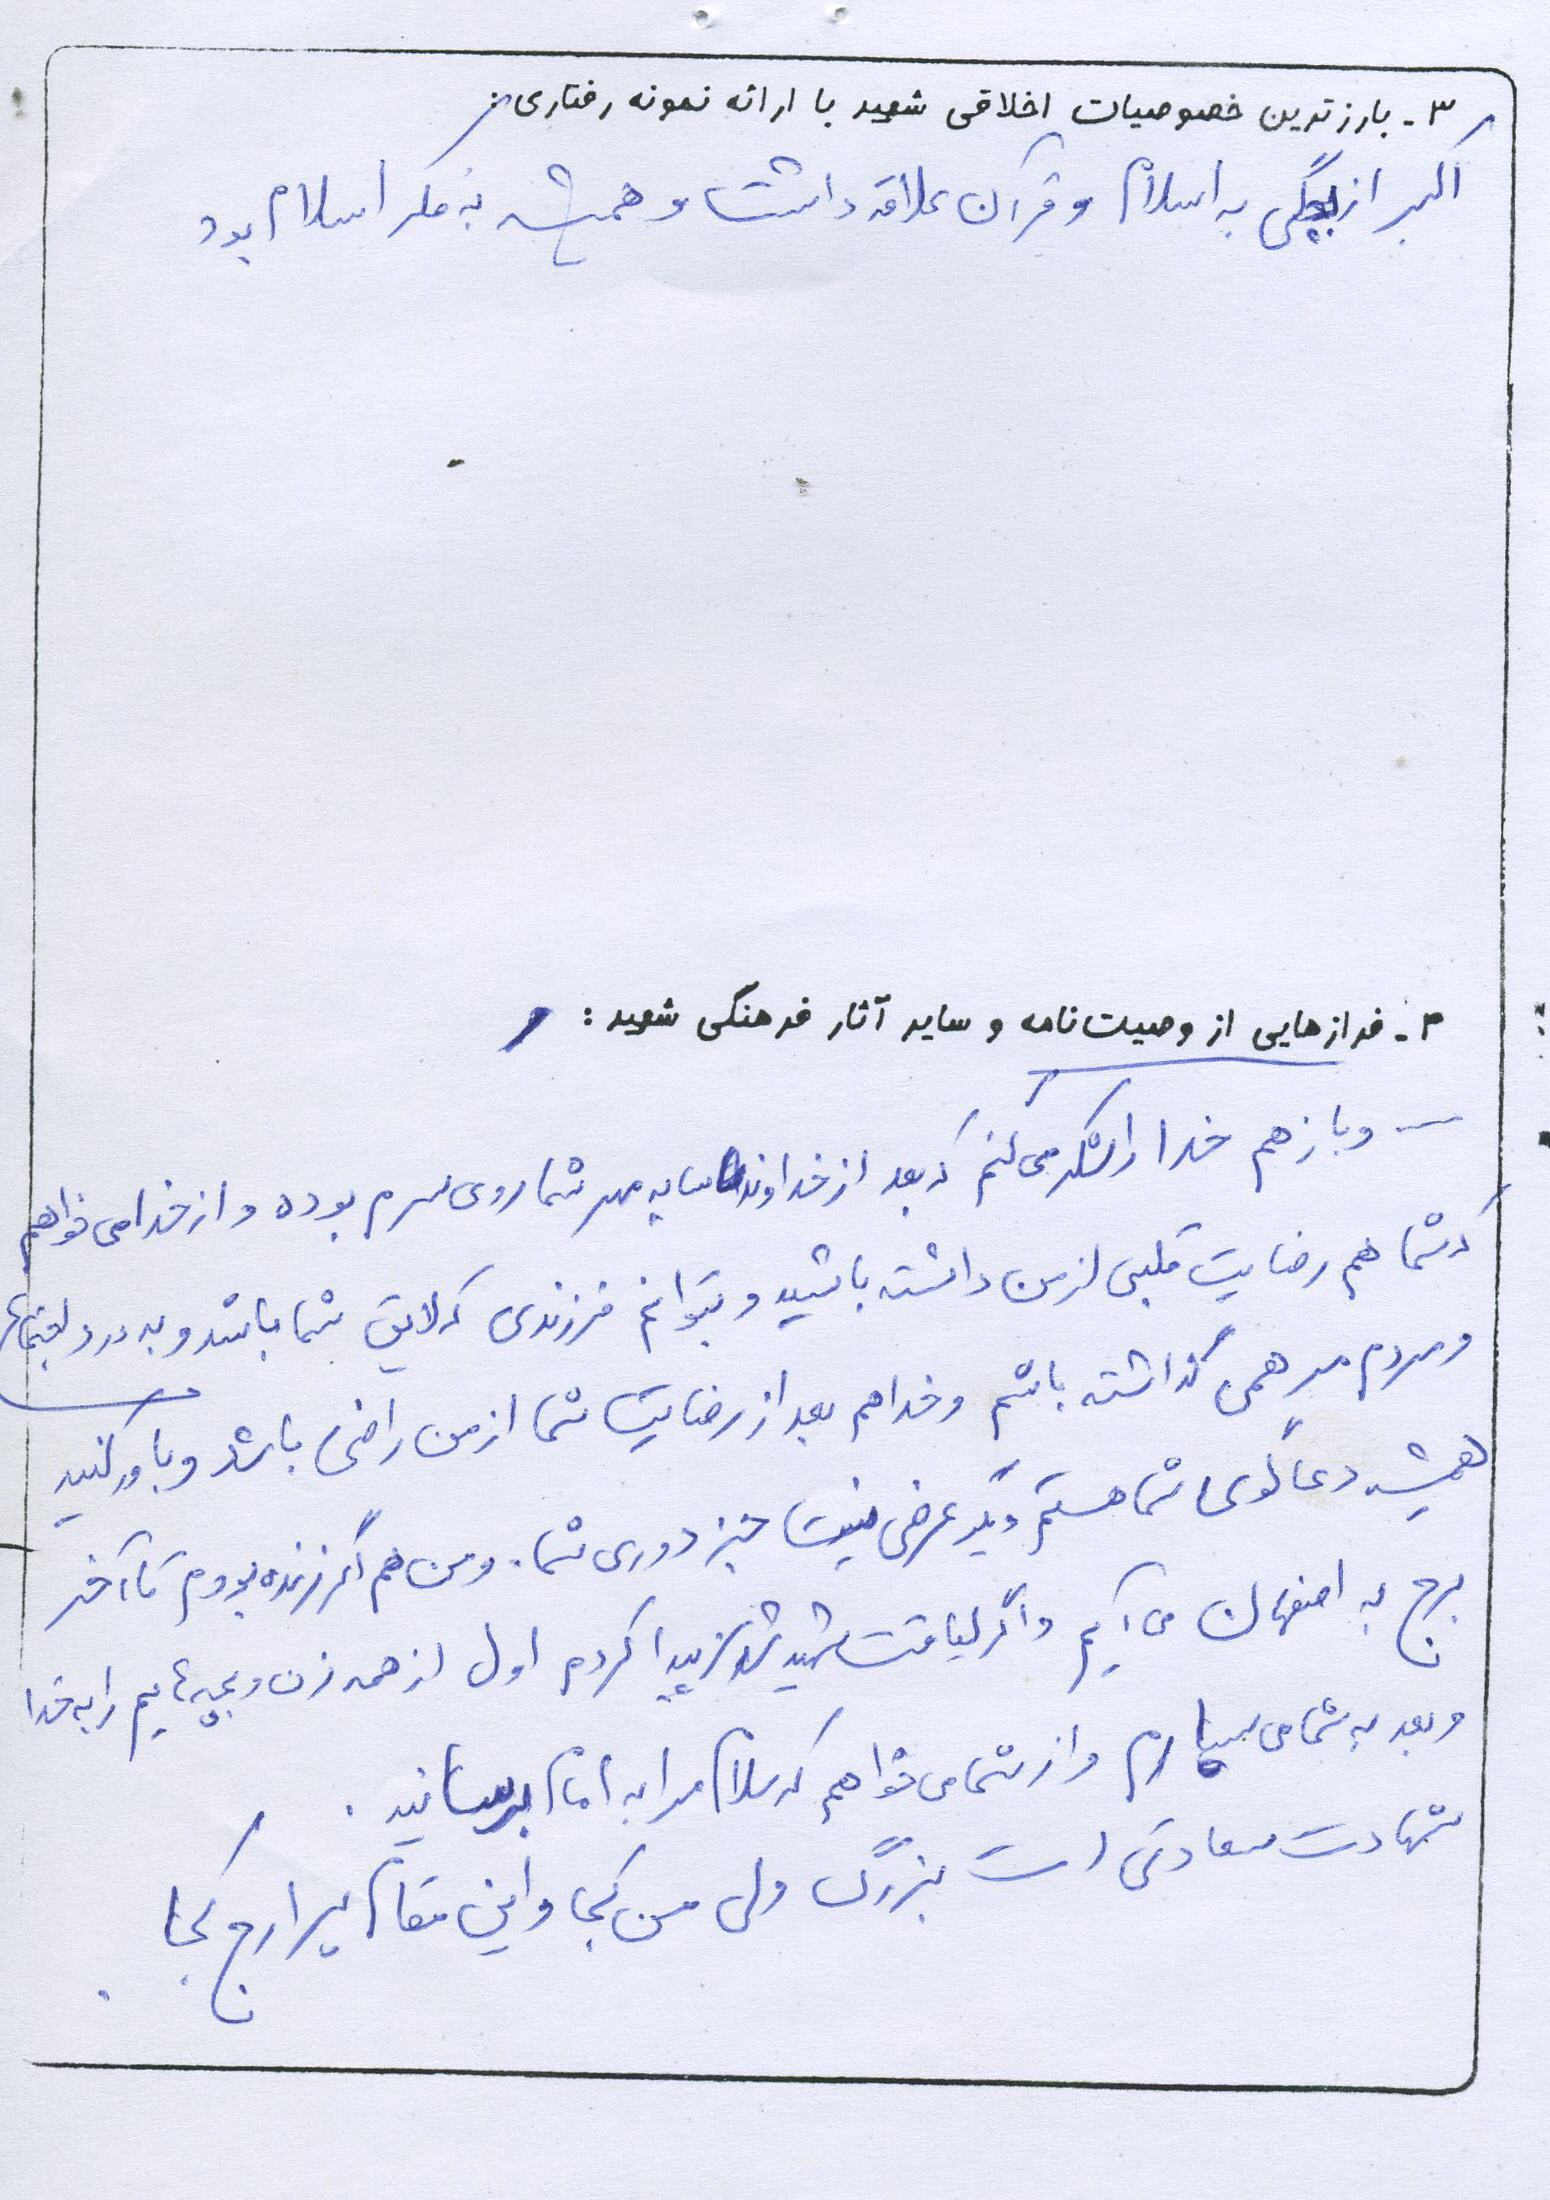 ۳ - بارزترین خصوصیات اخلاقی شهید با ارائه نمونه رفتاری:
اکبر از بچگی به اسلام و قرآن علاقه داشت و همیشه به فکر اسلام بود
۴ - فرازهایی از وصیت‌نامه و سایر آثار فرهنگی شهید:
— و باز هم خدا را شکر می کنم که بعد از خداوند سایه مهر شما روی سرم بوده و از خدا می خواهم
که شما هم رضایت قلبی از من داشته باشید و بتوانم فرزندی که لایق شما باشد و به درد
و مردم مرهمی گذاشته باشم و خدا هم بعد از رضایت شما از من راضی باشد و باور کنید
همیشه دعاگوی شما هستم دیگر عرضی نیست جز دوری شما. و من هم اگر زنده بودم تا آخر
برج به اصفهان می آیم و اگر لیاقت شهید شدن پیدا کردم اول از همه زن و بچه هایم را به خدا
و بعد به شما می سپارم و از شما می خواهم که سلام مرا به امام برسانید .
شهادت سعادتی است بزرگ ولی من کجا و این مقام پر ارج کجا .